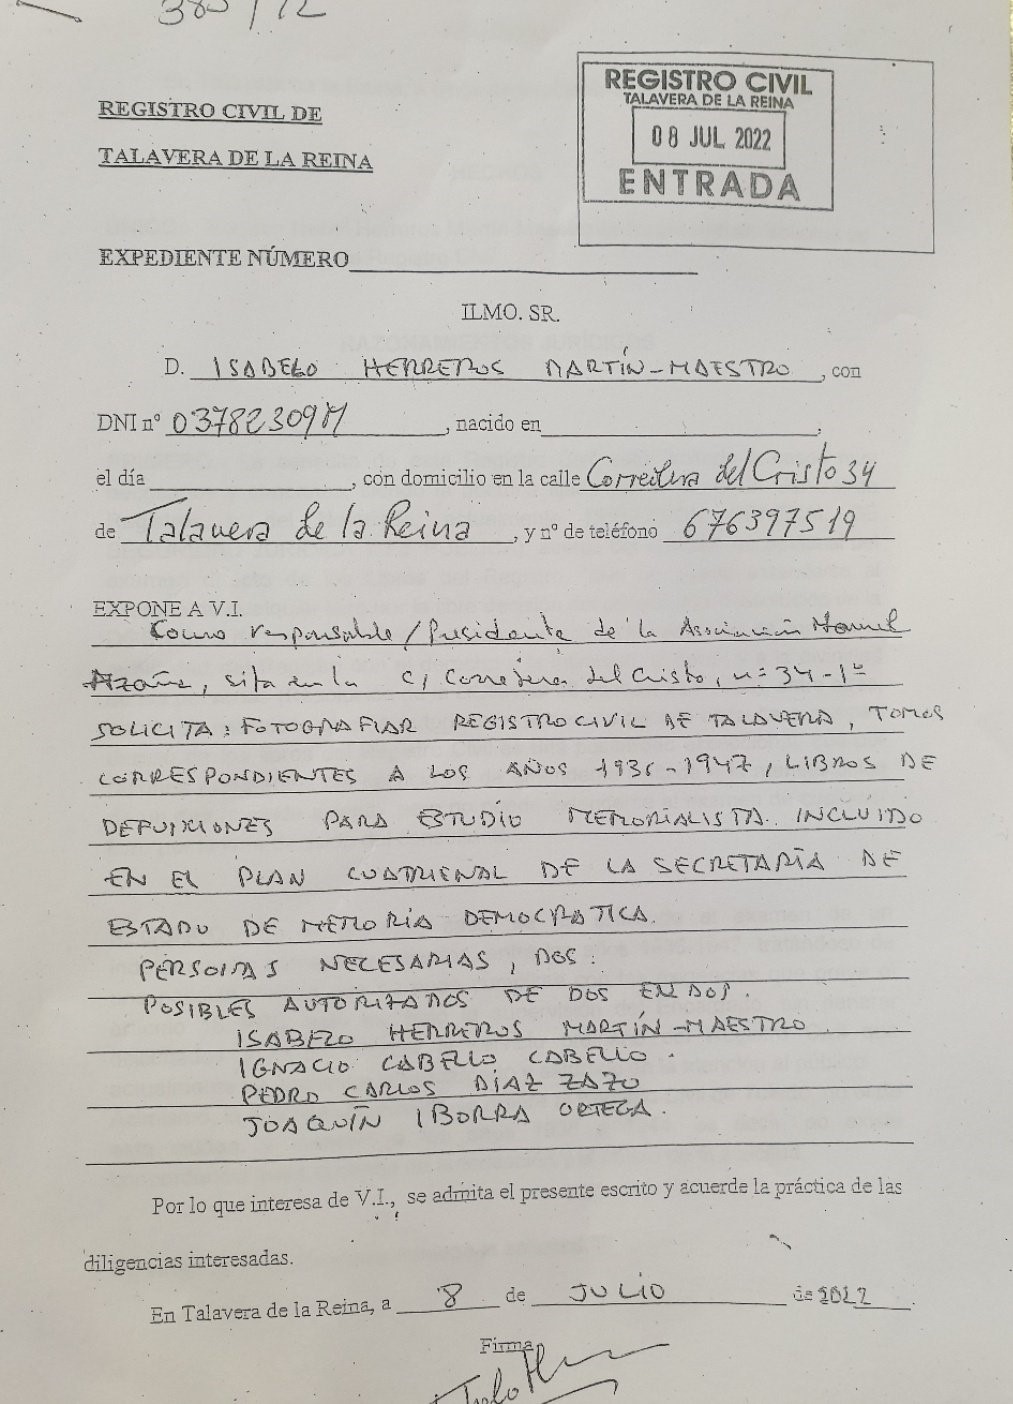 385/12
REGISTRO CIVIL
TALAVERA DE LA REINA
08 JUL 2022
ENTRADA
REGISTRO CIVIL DE
TALAVERA DE LA REINA
EXPEDIENTE NÚMERO
ILMO. SR.
D. ISABELO HERREROS MARTÍN-MAESTRO, con
DNI nº 03782309M, nacido en,
el día, con domicilio en la calle Corredera del Cristo 34
de Talavera de la Reina, y nº de teléfono 676397519
EXPONE A V.I.
Como responsable/Presidente de la Asociación Manuel
Azaña, sita en la C/ Corredera del Cristo, nº 34-1º
SOLICITA: FOTOGRAFIAR REGISTRO CIVIL DE TALAVERA, TOMOS
CORRESPONDIENTES A LOS AÑOS 1936-1947, LIBROS DE
DEFUNCIONES PARA ESTUDIO MEMORIALISTA INCLUIDO
EN EL PLAN CUATRIENAL DE LA SECRETARÍA DE
ESTADO DE MEMORIA DEMOCRATICA.
PERSONAS NECESARIAS, DOS:
POSIBLES AUTORIZADOS DE DOS EN DOS.
ISABELO HERREROS MARTÍN-MAESTRO
IGNACIO CABELLO CABELLO.
PEDRO CARLOS DÍAZ ZAZO
JOAQUÍN IBORRA ORTEGA.
Por lo que interesa de V.I., se admita el presente escrito y acuerde la práctica de las
diligencias interesadas.
En Talavera de la Reina, a 8 de JULIO de 2022
Firma